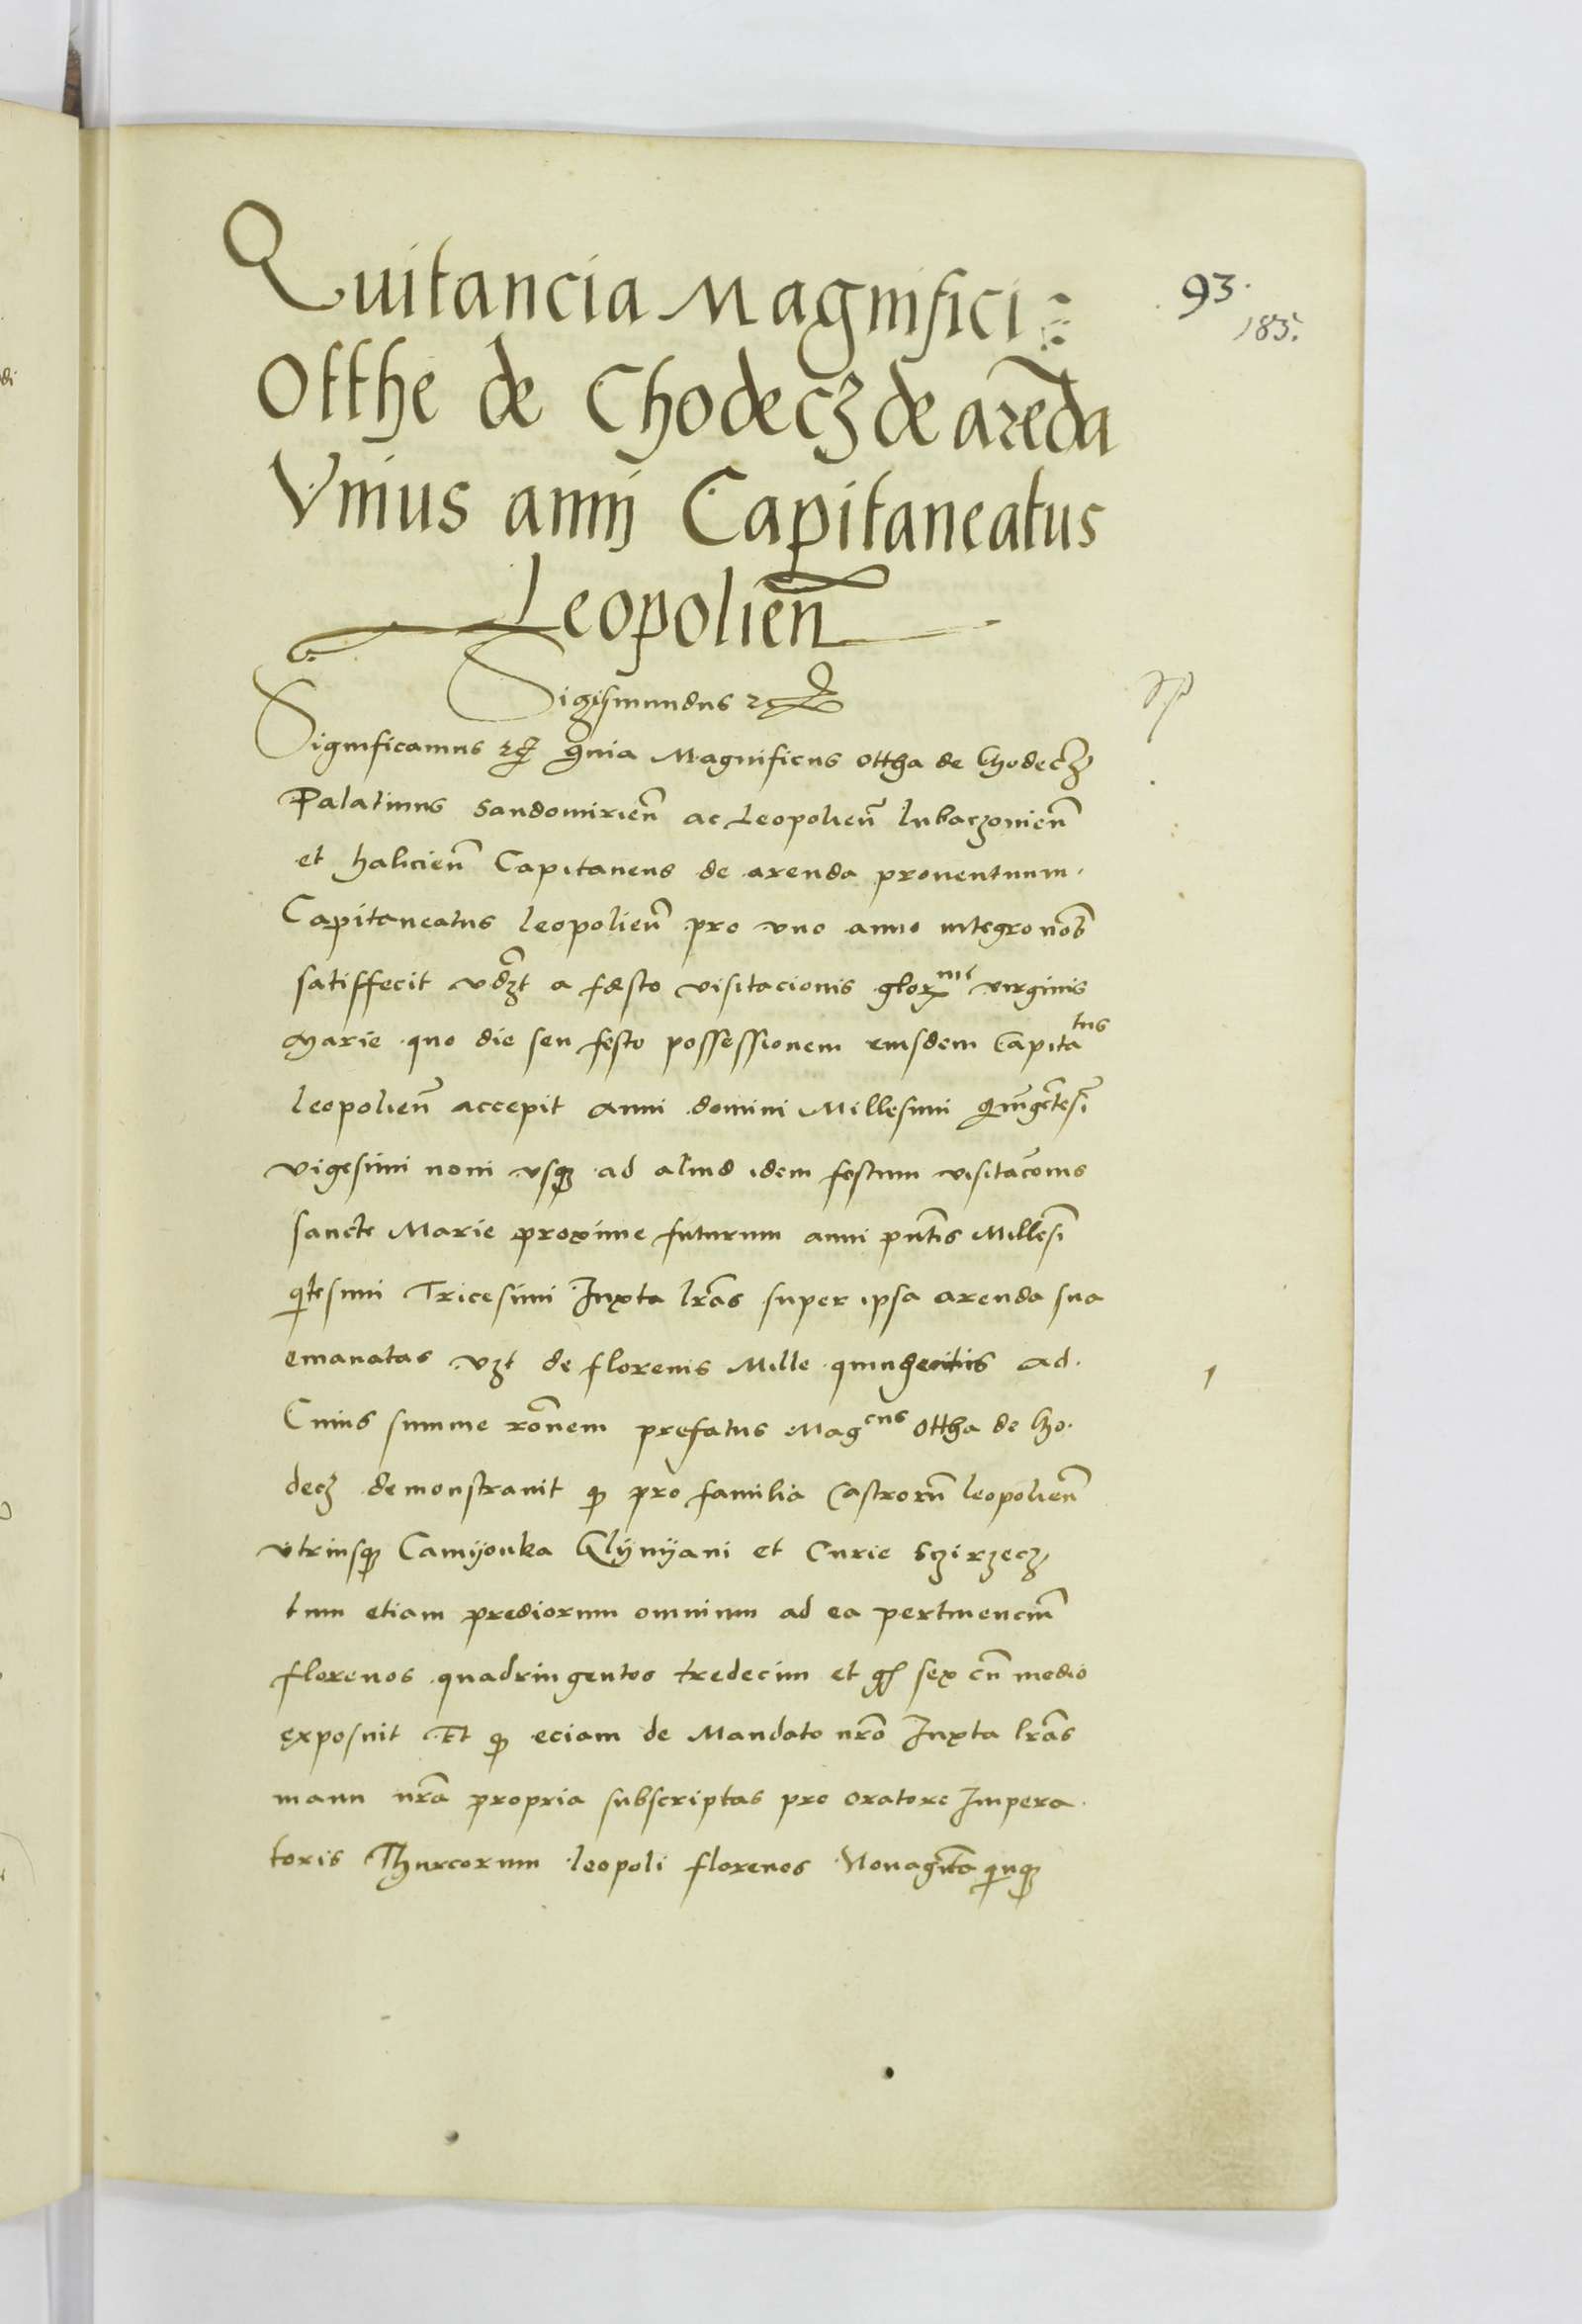 Quitancia Magnifici
93.
185.
Otthe de Chodecz de are͂da
Vnius annij Capitaneatus
Leopolien͂
Sigismundus
Significamus quia Magnificus Ottha de Chodecz
Palatinus Sandomirien͂ ac Leopolien͂ lubaczouien͂
et halicien͂ Capitaneus de arenda prouentuum
Capitaneatus leopolien͂ pro vno anno integro nob͂
satisfecit vdz͂t a fæsto visitacionis virginis
Marie quo die seu festo possessionem eiusdem Capitatus
leopolien͂ accepit anni domini Millesimi
vigesimi noni vsq3 ad aliud idem festum visitaco͂nis
sancte Marie proxime futurum anni pn͂tis Millesi͂
qi͂tesimi Tricesimi Iuxta lr͂as super ipsa arenda sua
emanatas vz͂t de florenis Mille quingentis ad
Cuius summe ro͂nem prefatus Mag͂cus Ottha de Cho
decz demonstrauit q3 pro familia Castroru͂ leopolien͂
vtriusq3 Camyonka Glynyani et Curie Szcirzecz
tum etiam prediorum omnium ad ea pertinenciu͂
florenos quadringentos tredecim et gs sex cu͂ medio
exposuit Et q3 eciam de Mandato nr͂o Iuxta lr͂as
manu nr͂a propria subscriptas pro oratore Impera
toris Thurcorum leopoli florenos Nonagi͂ta qi͂nq3